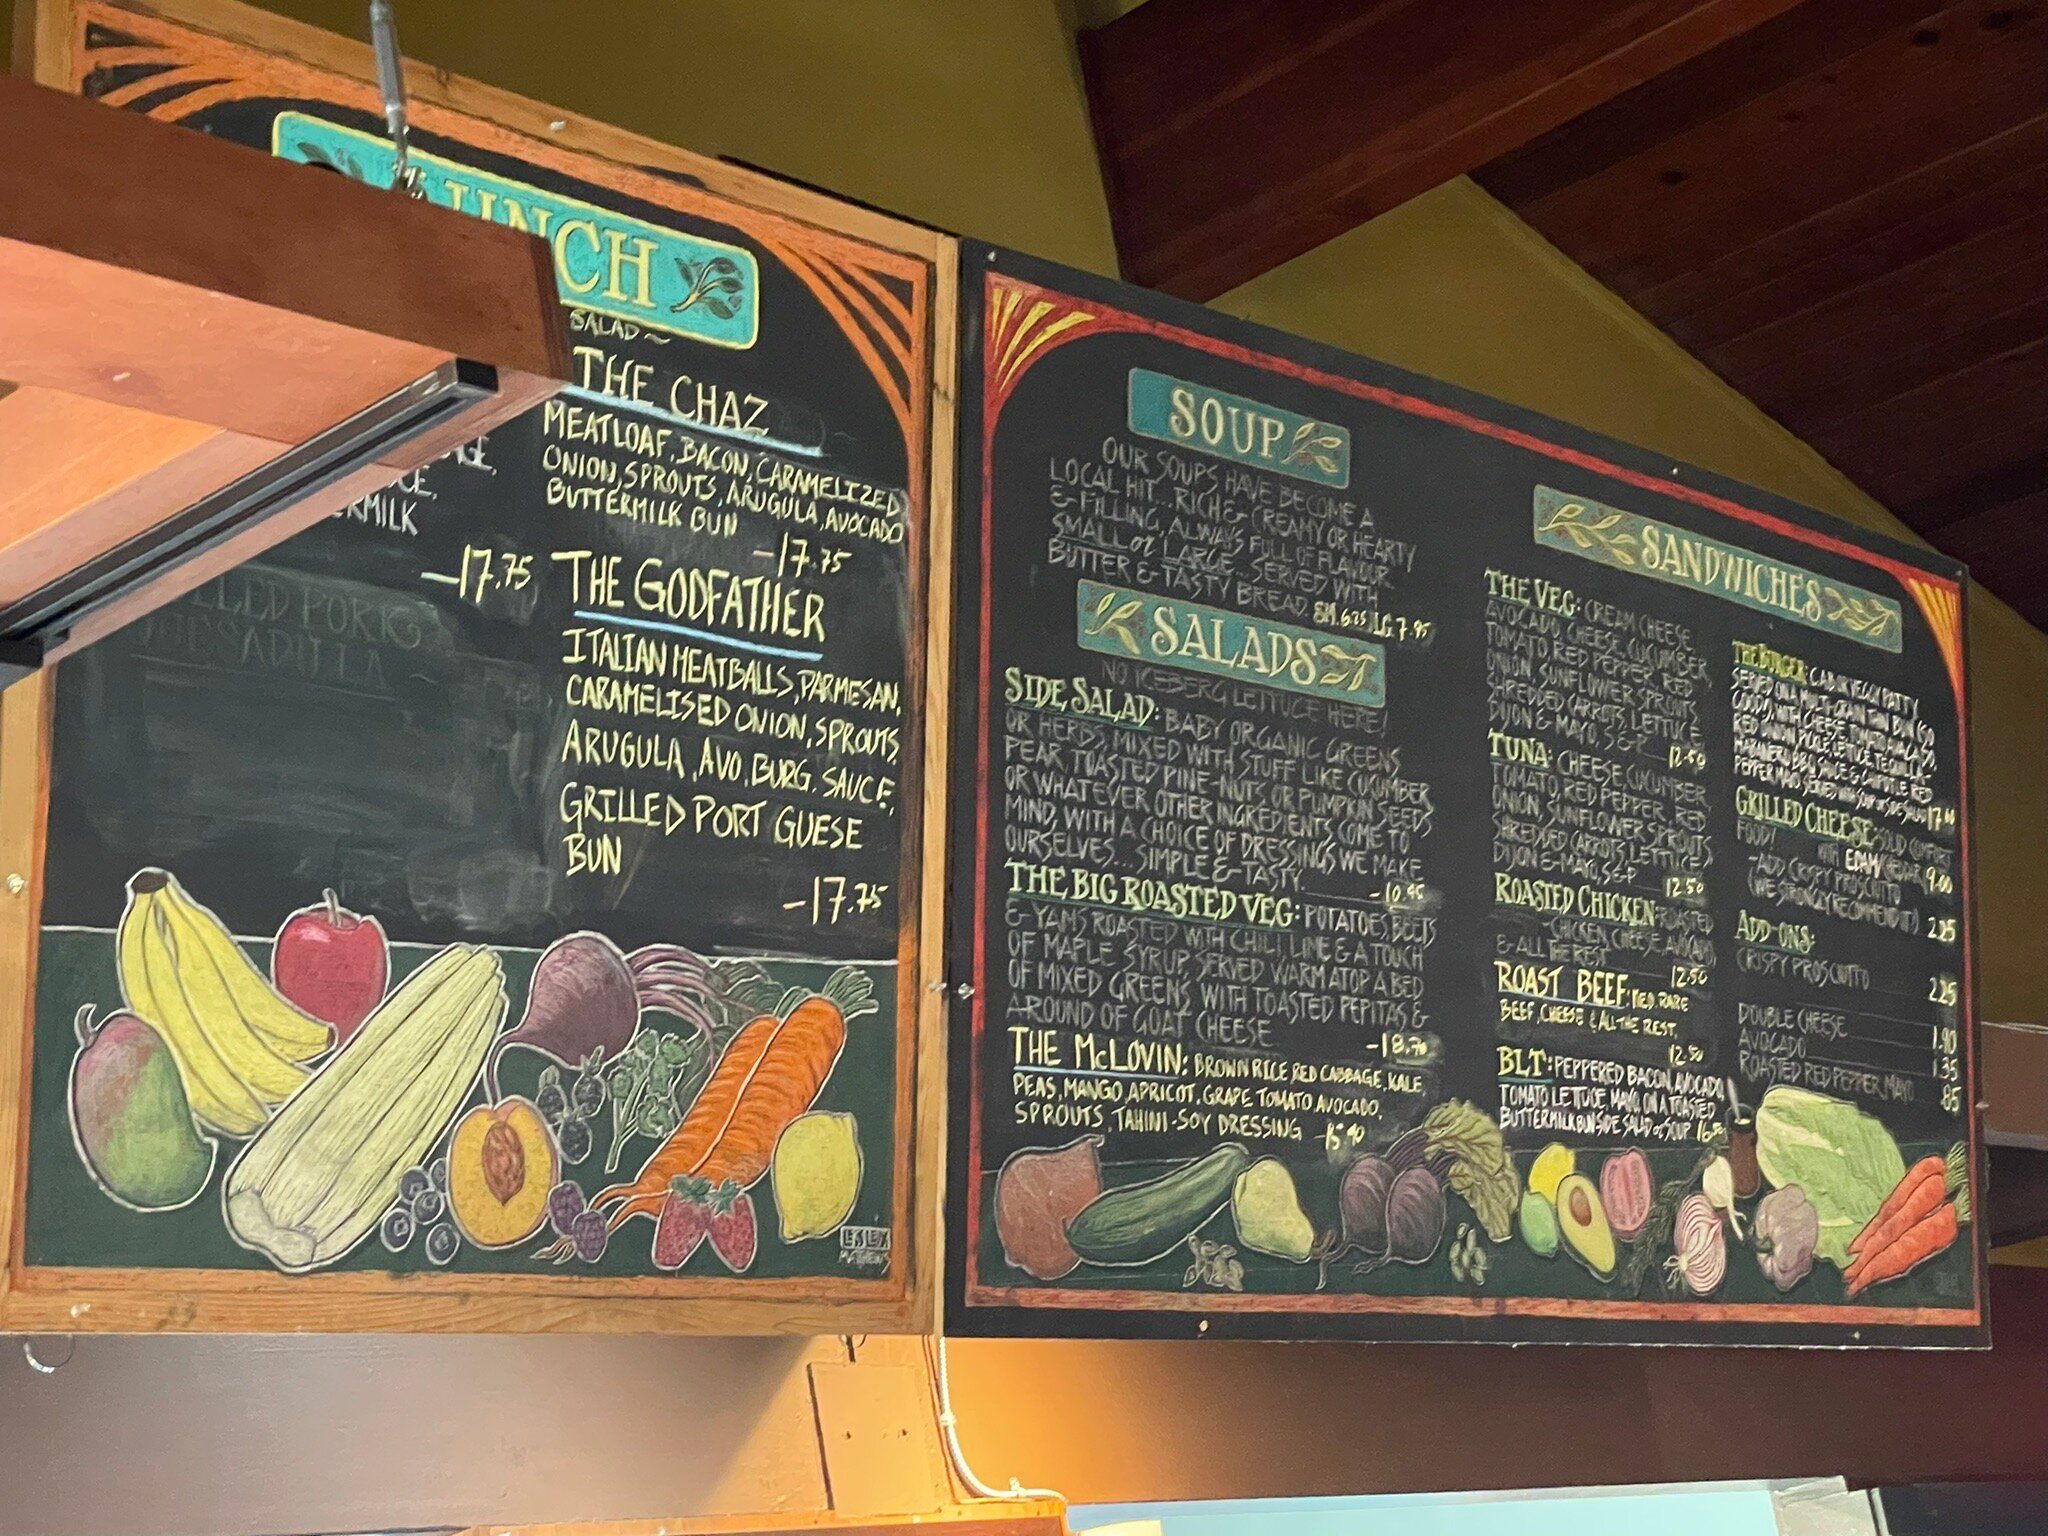 LUNCH
SALAD ~
THE CHAZ
MEATLOAF, BACON, CARAMELIZED
ONION, SPROUTS, ARUGULA, AVOCADO
BUTTERMILK BUN
-17.75
-17.75
THE GODFATHER
ITALIAN MEATBALLS, PARMESAN,
CARAMELISED ONION, SPROUTS,
ARUGULA, AVO, BURG. SAUCE,
GRILLED PORT GUESE
BUN
-17.75
LESLEY
MATTHEWS
SOUP
OUR SOUPS HAVE BECOME A
LOCAL HIT... RICH & CREAMY OR HEARTY
& FILLING, ALWAYS FULL OF FLAVOUR.
SMALL or LARGE SERVED WITH
BUTTER & TASTY BREAD. SM. 6.25 LG. 7.95
SALADS
NO ICEBERG LETTUCE HERE!
SIDE SALAD: BABY ORGANIC GREENS
OR HERBS, MIXED WITH STUFF LIKE CUCUMBER,
PEAR, TOASTED PINE-NUTS OR PUMPKIN SEEDS
OR WHATEVER OTHER INGREDIENTS COME TO
MIND, WITH A CHOICE OF DRESSINGS WE MAKE
OURSELVES... SIMPLE & TASTY.
-10.95
THE BIG ROASTED VEG: POTATOES, BEETS
& YAMS ROASTED WITH CHILI, LIME & A TOUCH
OF MAPLE SYRUP, SERVED WARM ATOP A BED
OF MIXED GREENS WITH TOASTED PEPITAS &
A ROUND OF GOAT CHEESE
-18.70
THE McLOVIN: BROWN RICE, RED CABBAGE, KALE,
PEAS, MANGO, APRICOT, GRAPE TOMATO, AVOCADO,
SPROUTS, TAHINI-SOY DRESSING -15.90
SANDWICHES
THE VEG: CREAM CHEESE,
AVOCADO, CHEESE, CUCUMBER,
TOMATO, RED PEPPER, RED
ONION, SUNFLOWER SPROUTS,
SHREDDED CARROTS, LETTUCE,
DIJON & MAYO, S & P
12.50
TUNA: CHEESE, CUCUMBER,
TOMATO, RED PEPPER, RED
ONION, SUNFLOWER SPROUTS,
SHREDDED CARROTS, LETTUCE,
DIJON & MAYO, S & P
12.50
ROASTED CHICKEN: ROASTED
CHICKEN, CHEESE, AVOCADO,
& ALL THE REST
12.50
ROAST BEEF: MED. RARE
BEEF, CHEESE & ALL THE REST,
12.50
BLT: PEPPERED BACON, AVOCADO,
TOMATO, LETTUCE, MAYO, ON A TOASTED
BUTTERMILK BUN SIDE SALAD or SOUP
THE BURGER: CAB or VEGGY PATTY
SERVED ON A MULTI-GRAIN THIN BUN (SO
GOOD), WITH CHEESE, TOMATO,
RED ONION, PICKLE, LETTUCE, TEQUILA-
HABANERO BBQ SAUCE & CHIPOTLE RED
PEPPER MAYO. SERVED WITH SOUP or SIDE SALAD
GRILLED CHEESE: SOLID COMFORT
FOOD! WITH EDAM/CHEDDAR 9.00
-ADD CRISPY PROSCIUTTO
(WE STRONGLY RECOMMEND IT) 2.25
ADD-ONS:
CRISPY PROSCIUTTO 2.25
DOUBLE CHEESE 1.90
AVOCADO 1.35
ROASTED RED PEPPER MAYO .85